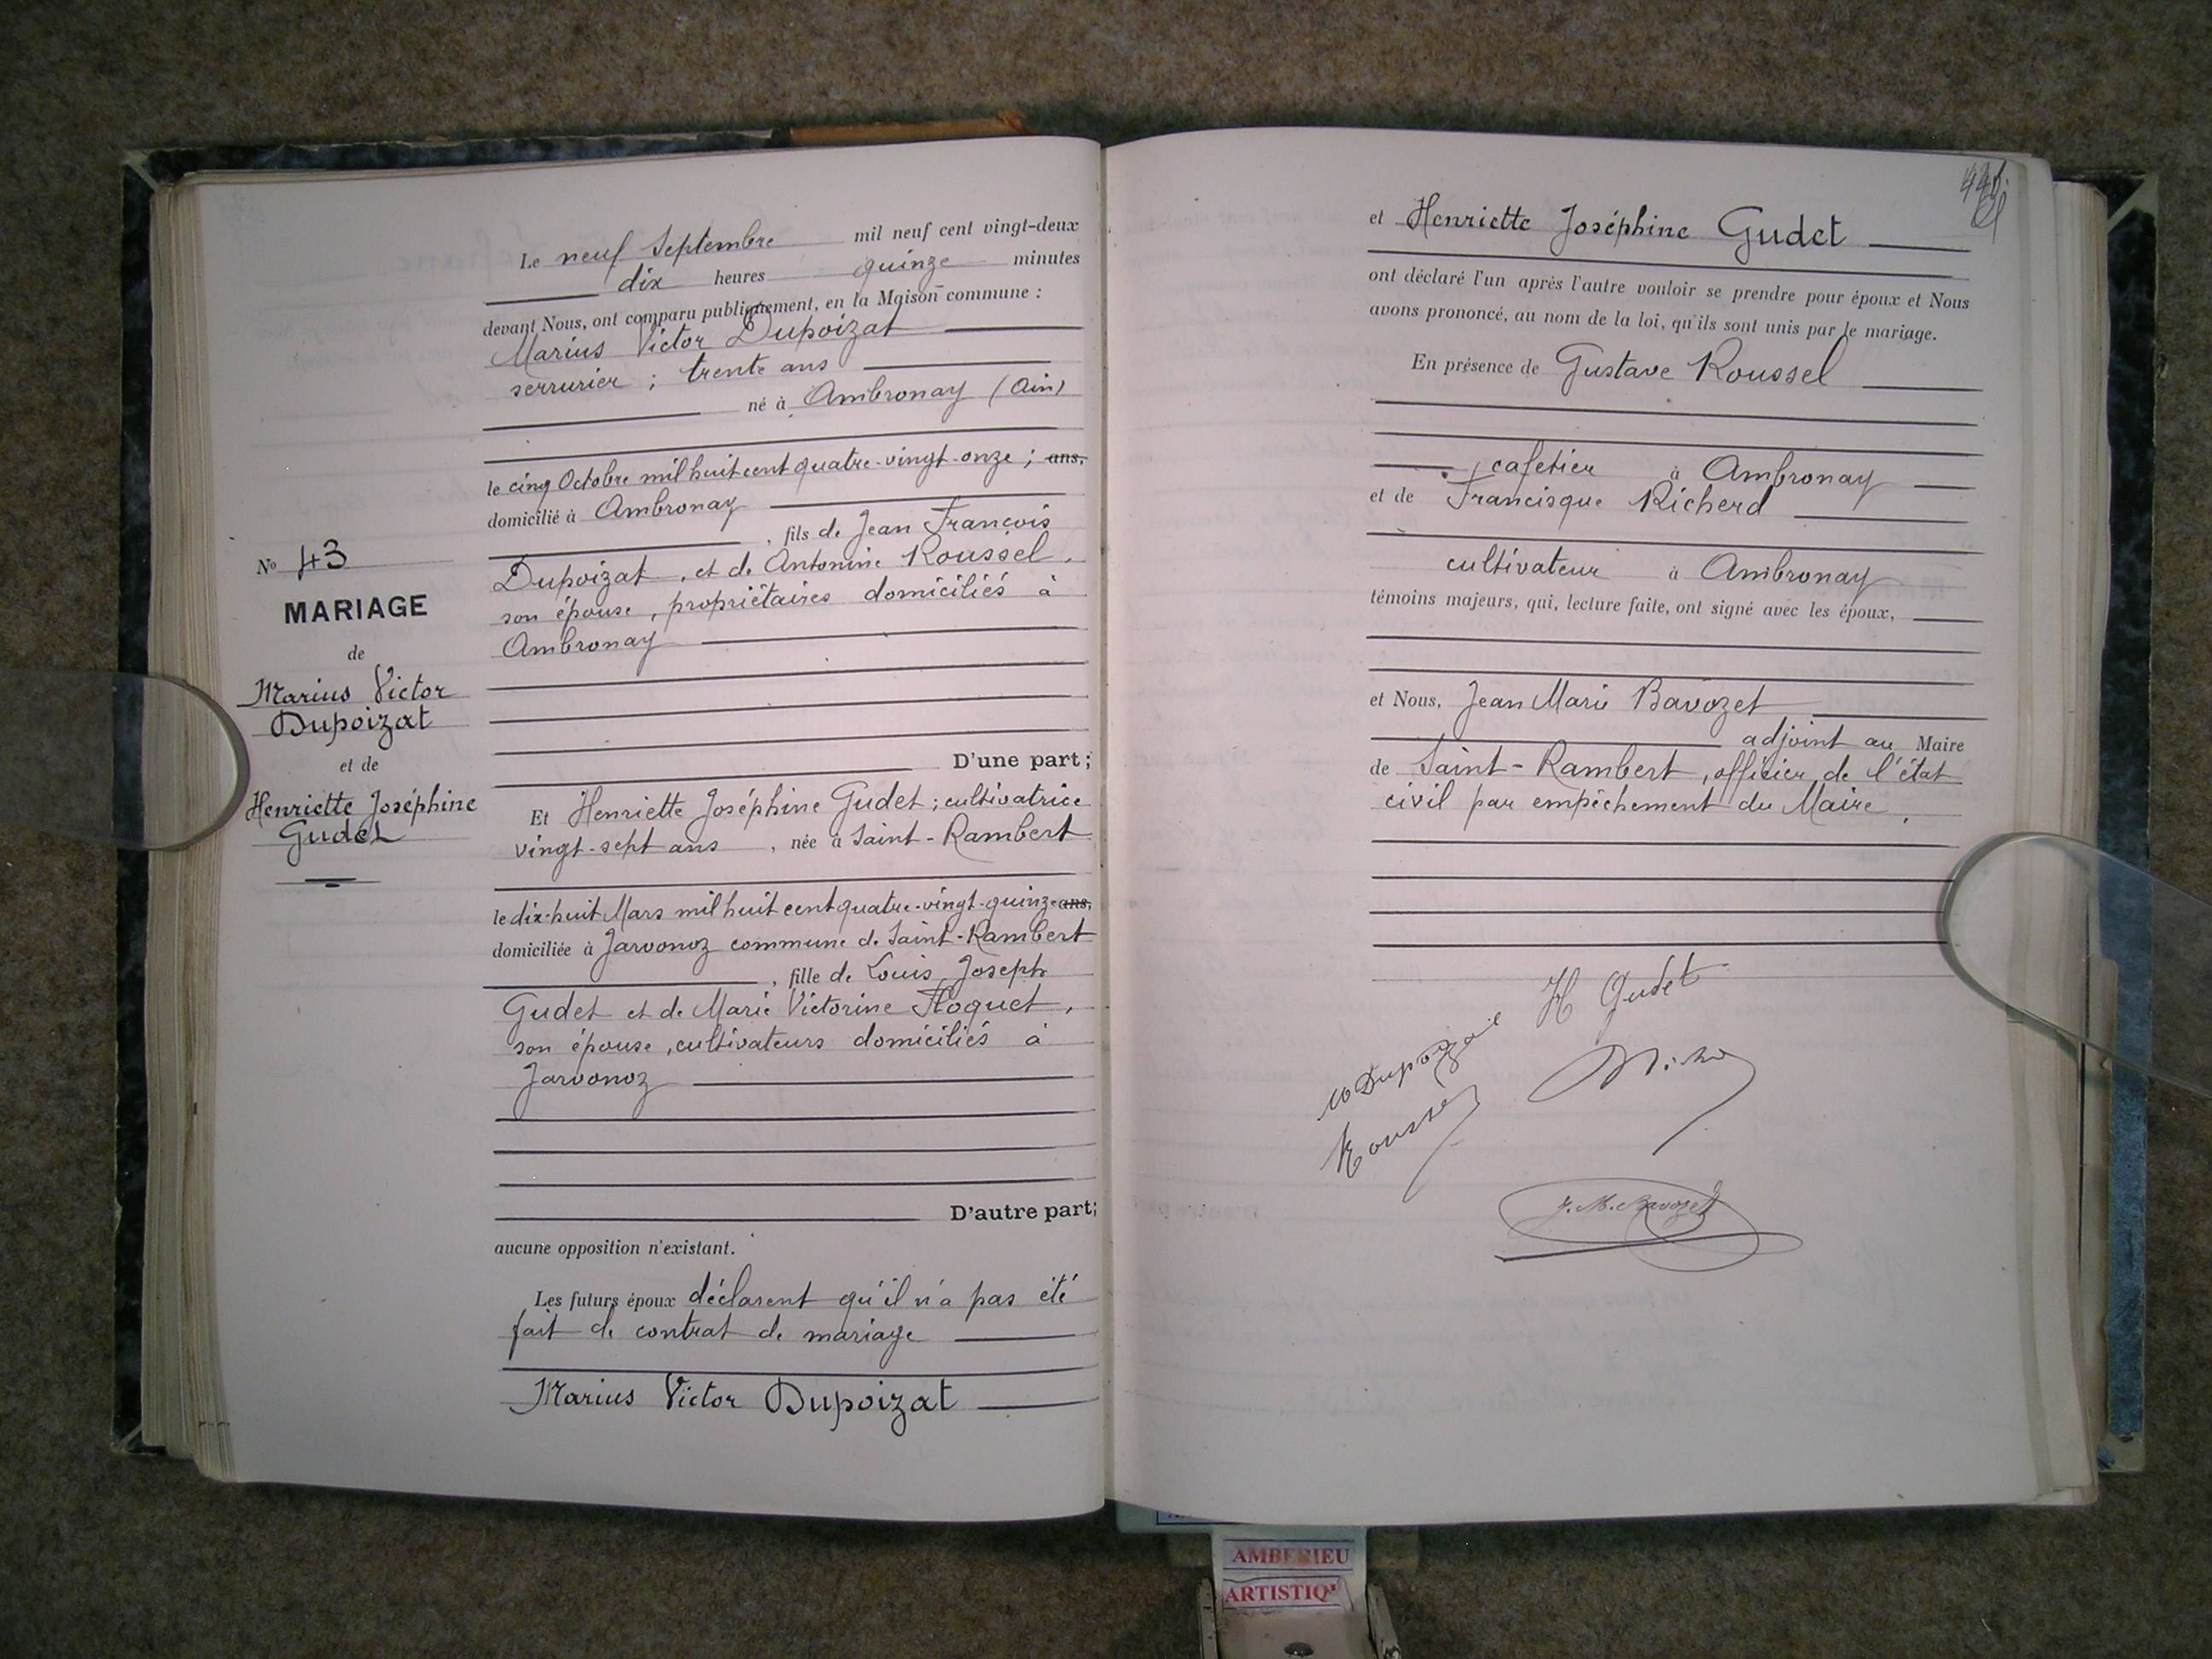 No 43
MARIAGE
de
Marius Victor
Dupoizat
et de
Henriette Joséphine
Gudet
Le neuf Septembre mil neuf cent vingt-deux
dix heures quinze minutes
devant Nous, ont comparu publiquement, en la Maison commune :
Marius Victor Dupoizat
serrurier ; trente ans
né à Ambronay (Ain)
le cinq Octobre mil huit cent quatre-vingt-onze ; ans,
domicilié à Ambronay
, fils de Jean François
Dupoizat, et de Antonine Roussel,
son épouse, propriétaires domiciliés à
Ambronay
D'une part ;
Et Henriette Joséphine Gudet ; cultivatrice
vingt-sept ans , née à Saint-Rambert
le dix-huit Mars mil huit cent quatre-vingt-quinze ans,
domiciliée à Javornoz commune de Saint-Rambert
, fille de Louis Joseph
Gudet et de Marie Victorine
son épouse, cultivateurs domiciliés à
Javornoz
D'autre part;
aucune opposition n'existant.
Les futurs époux déclarent qu'il n'a pas été
fait de contrat de mariage
Marius Victor Dupoizat
et Henriette Joséphine Gudet
ont déclaré l'un après l'autre vouloir se prendre pour époux et Nous
avons prononcé, au nom de la loi, qu'ils sont unis par le mariage.
En présence de Gustave Roussel
cafetier à Ambronay
et de Francisque Richerd
cultivateur à Ambronay
témoins majeurs, qui, lecture faite, ont signé avec les époux,
et Nous, Jean Marie Bavozet
adjoint au Maire
de Saint-Rambert, officier de l'état
civil par empêchement du Maire.
H Gudet
Dupoizat
Roussel
J. M. Bavozet
AMBERIEU
ARTISTIQ